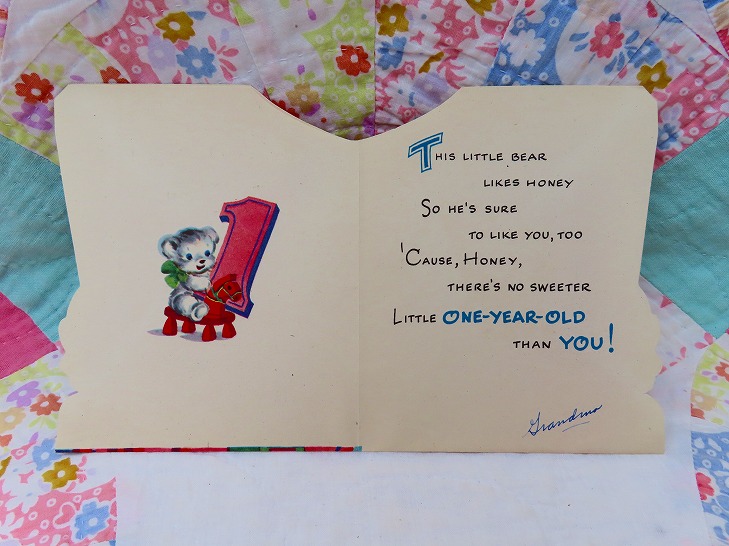 1
This little bear
likes honey
So he's sure
to like you, too
'Cause, Honey,
there's no sweeter
Little ONE-YEAR-OLD
than YOU!
Grandma